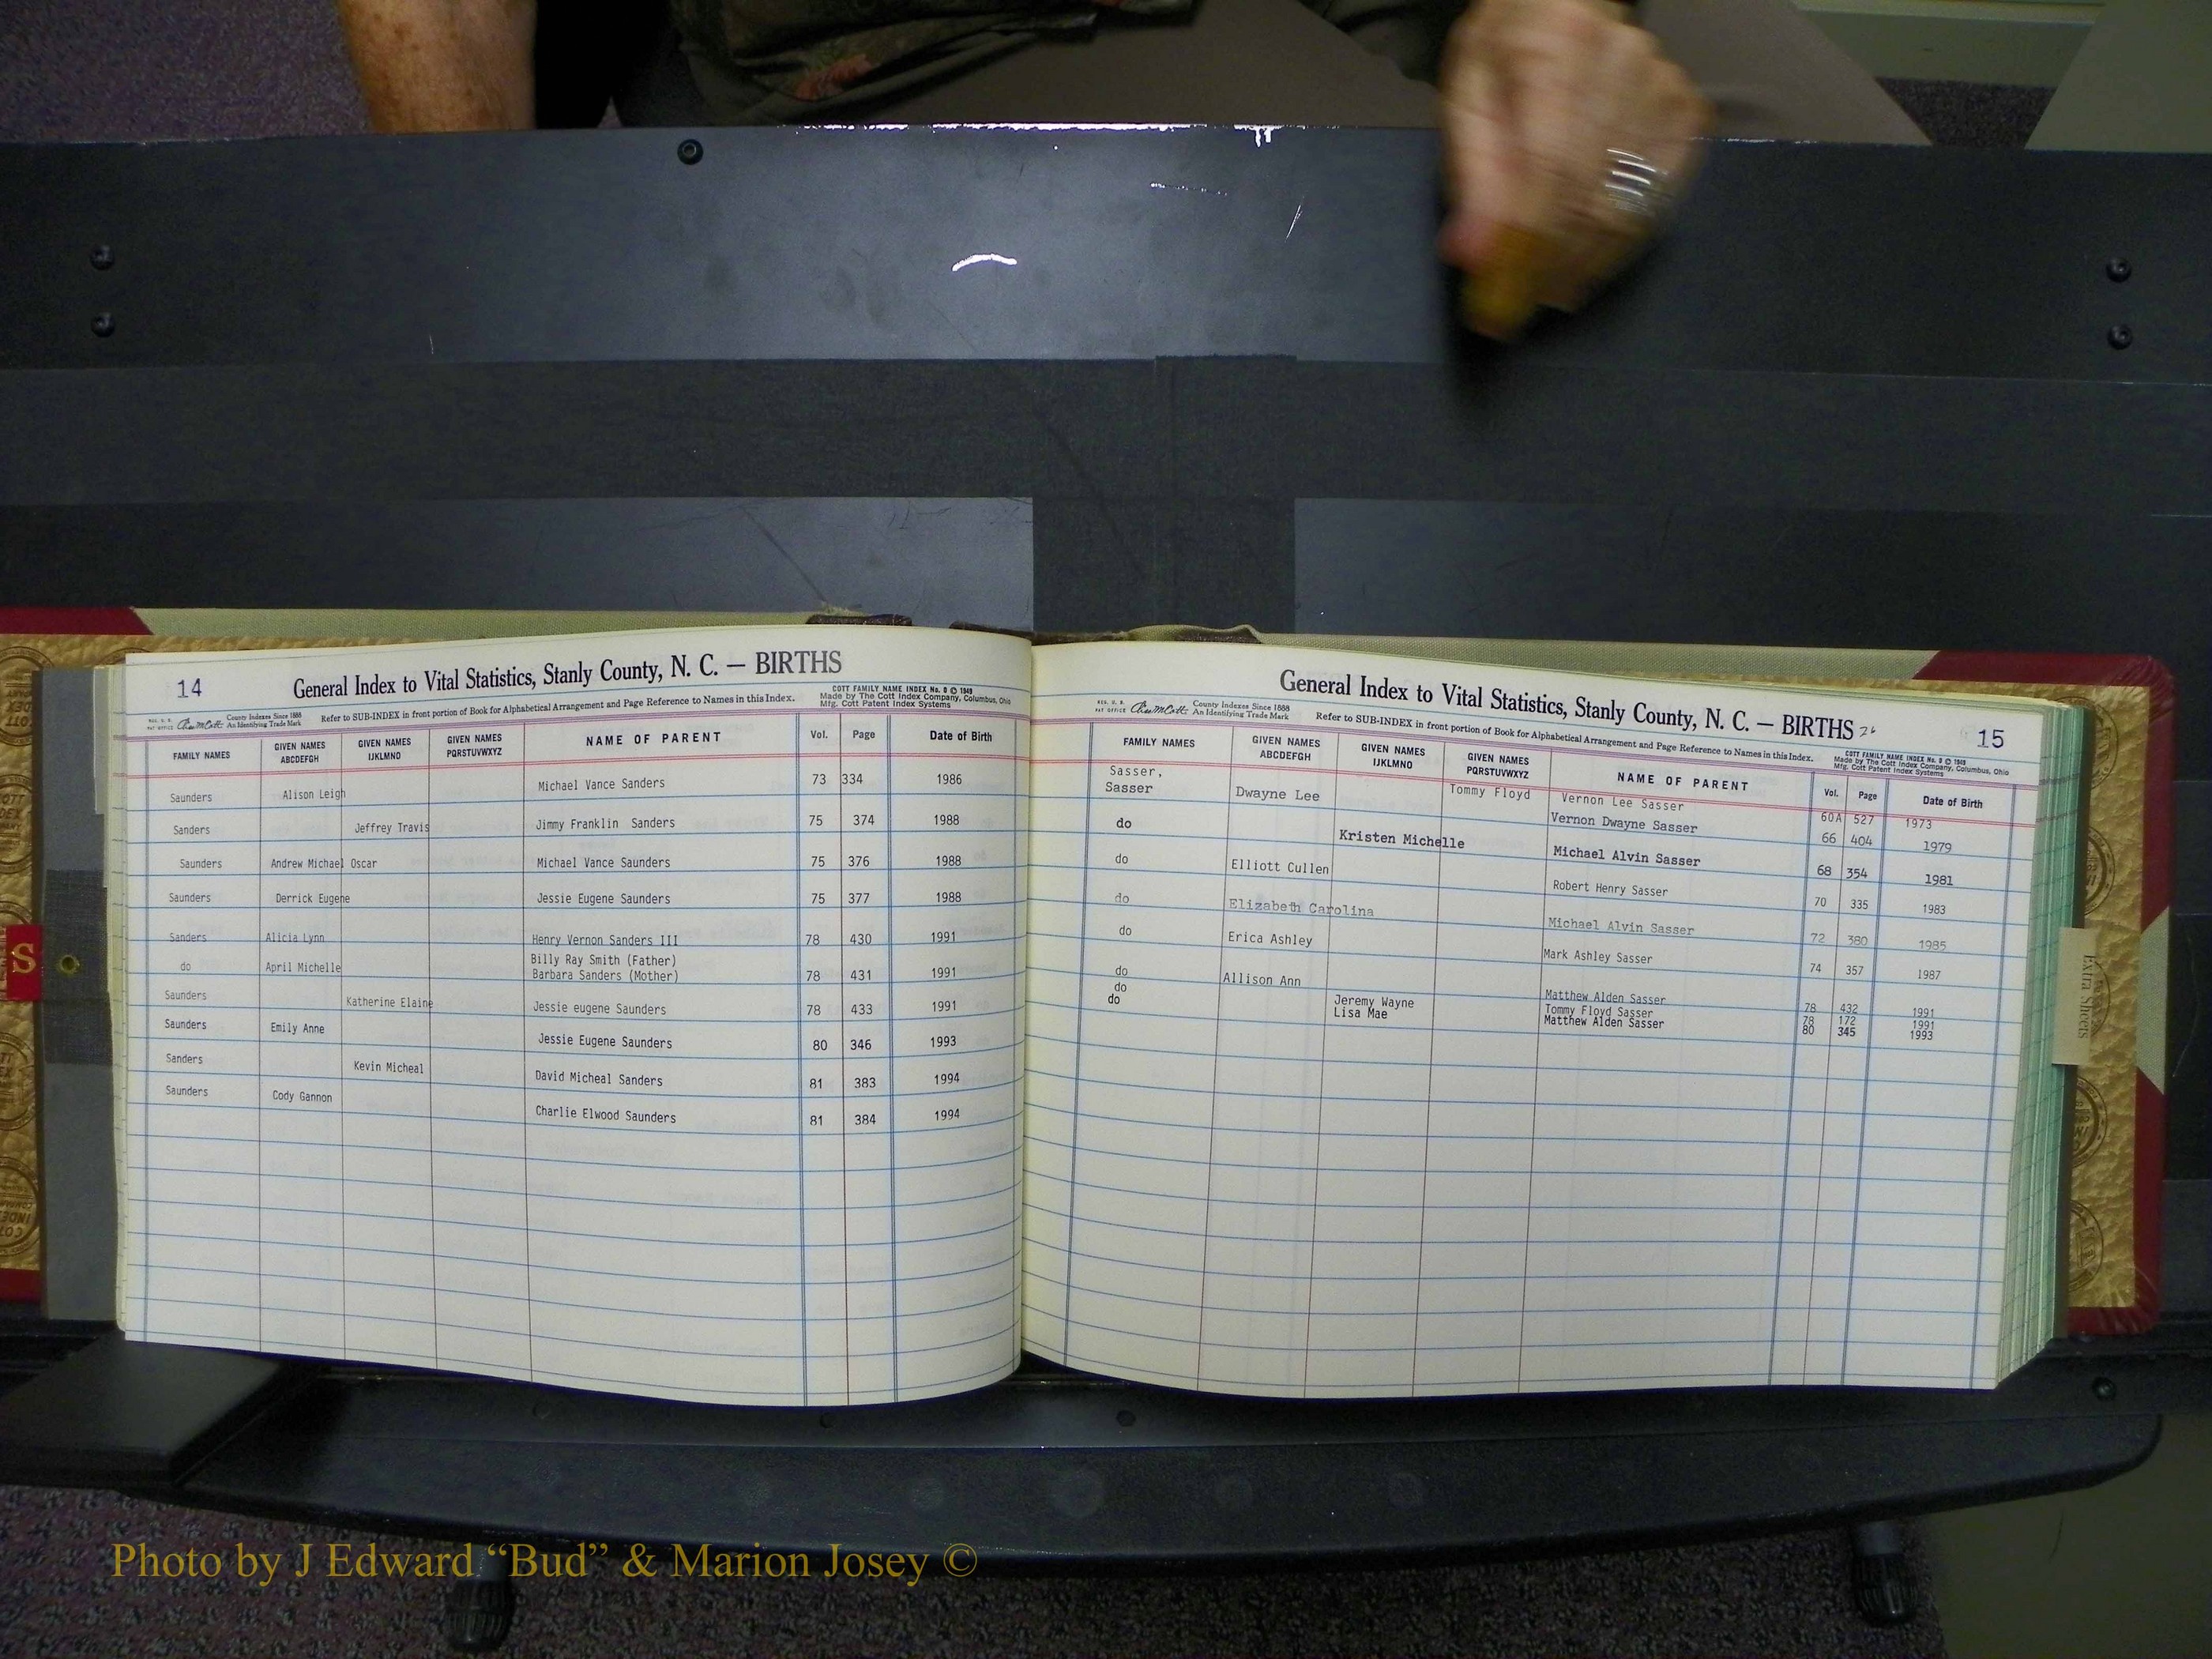 14
General Index to Vital Statistics, Stanly County, N. C. — BIRTHS
COTT FAMILY NAME INDEX No. 0 © 1949
REG. U. S. PAT OFFICE County Indexes Since 1888 An Identifying Trade Mark Refer to SUB-INDEX in front portion of Book for Alphabetical Arrangement and Page Reference to Names in this Index. Made by The Cott Index Company, Columbus, Ohio
Mfg. Cott Patent Index Systems
FAMILY NAMES GIVEN NAMES ABCDEFGH GIVEN NAMES IJKLMNO GIVEN NAMES PQRSTUVWXYZ NAME OF PARENT Vol. Page Date of Birth
Saunders Alison Leigh Michael Vance Sanders 73 334 1986
Sanders Jeffrey Travis Jimmy Franklin Sanders 75 374 1988
Saunders Andrew Michael Oscar Michael Vance Saunders 75 376 1988
Saunders Derrick Eugene Jessie Eugene Saunders 75 377 1988
Sanders Alicia Lynn Henry Vernon Sanders III 78 430 1991
do April Michelle Billy Ray Smith (Father)
Barbara Sanders (Mother) 78 431 1991
Saunders Katherine Elaine Jessie eugene Saunders 78 433 1991
Saunders Emily Anne Jessie Eugene Saunders 80 346 1993
Sanders Kevin Micheal David Micheal Sanders 81 383 1994
Saunders Cody Gannon Charlie Elwood Saunders 81 384 1994
General Index to Vital Statistics, Stanly County, N. C. — BIRTHS
15
REG. U. S. PAT OFFICE County Indexes Since 1888 An Identifying Trade Mark Refer to SUB-INDEX in front portion of Book for Alphabetical Arrangement and Page Reference to Names in this Index. COTT FAMILY NAME INDEX No. 0 © 1949
Made by The Cott Index Company, Columbus, Ohio
Mfg. Cott Patent Index Systems
FAMILY NAMES GIVEN NAMES ABCDEFGH GIVEN NAMES IJKLMNO GIVEN NAMES PQRSTUVWXYZ NAME OF PARENT Vol. Page Date of Birth
Sasser, Tommy Floyd Vernon Lee Sasser 60A 527 1973
Sasser Dwayne Lee Vernon Dwayne Sasser 66 404 1979
do Kristen Michelle Michael Alvin Sasser 68 354 1981
do Elliott Cullen Robert Henry Sasser 70 335 1983
do Elizabeth Carolina Michael Alvin Sasser 72 380 1985
do Erica Ashley Mark Ashley Sasser 74 357 1987
do Allison Ann Matthew Alden Sasser 78 432 1991
do Jeremy Wayne Tommy Floyd Sasser 78 172 1991
do Lisa Mae Matthew Alden Sasser 80 345 1993
S
Extra Sheets
Photo by J Edward “Bud” & Marion Josey ©